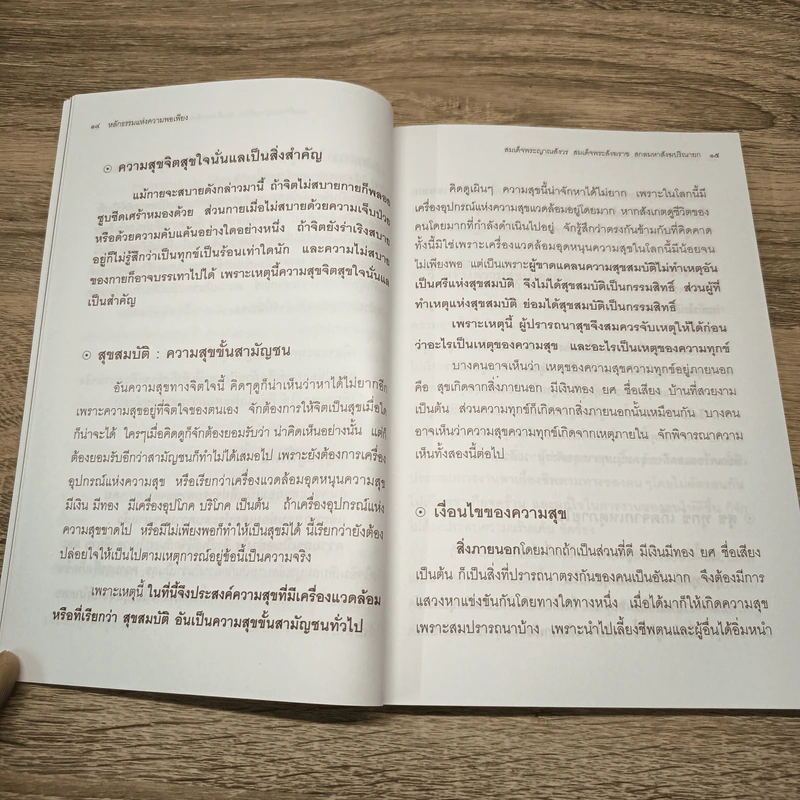 ๑๔ หลักธรรมแห่งความพอเพียง
๏ ความสุขจิตสุขใจนั่นแลเป็นสิ่งสำคัญ
แม้กายจะสบายดังกล่าวมานี้ ถ้าจิตไม่สบายกายก็พลอย
ซูบซีดเศร้าหมองด้วย ส่วนกายเมื่อไม่สบายด้วยความเจ็บป่วย
หรือด้วยความคับแค้นอย่างใดอย่างหนึ่ง ถ้าจิตยังร่าเริงสบาย
อยู่ก็ไม่รู้สึกว่าเป็นทุกข์เป็นร้อนเท่าใดนัก และความไม่สบาย
ของกายก็อาจบรรเทาไปได้ เพราะเหตุนี้ความสุขจิตสุขใจนั่นแล
เป็นสำคัญ
๏ สุขสมบัติ : ความสุขขั้นสามัญชน
อันความสุขทางจิตใจนี้ คิดๆดูก็น่าเห็นว่าหาได้ไม่ยากอีก
เพราะความสุขอยู่ที่จิตใจของตนเอง จักต้องการให้จิตเป็นสุขเมื่อใด
ก็น่าจะได้ ใครๆเมื่อคิดดูก็จักต้องยอมรับว่า น่าคิดเห็นอย่างนั้น แต่ก็
ต้องยอมรับอีกว่าสามัญชนก็ทำไม่ได้เสมอไป เพราะยังต้องการเครื่อง
อุปกรณ์แห่งความสุข หรือเรียกว่าเครื่องแวดล้อมอุดหนุนความสุข
มีเงิน มีทอง มีเครื่องอุปโภค บริโภค เป็นต้น ถ้าเครื่องอุปกรณ์แห่ง
ความสุขขาดไป หรือมีไม่เพียงพอก็ทำให้เป็นสุขมิได้ นี้เรียกว่ายังต้อง
ปล่อยใจให้เป็นไปตามเหตุการณ์อยู่ข้อนี้เป็นความจริง
เพราะเหตุนี้ ในที่นี้จึงประสงค์ความสุขที่มีเครื่องแวดล้อม
หรือที่เรียกว่า สุขสมบัติ อันเป็นความสุขขั้นสามัญชนทั่วไป
สมเด็จพระญาณสังวร สมเด็จพระสังฆราช สกลมหาสังฆปริณายก ๑๕
คิดดูเผินๆ ความสุขนี้น่าจักหาได้ไม่ยาก เพราะในโลกนี้มี
เครื่องอุปกรณ์แห่งความสุขแวดล้อมอยู่โดยมาก หากสังเกตดูชีวิตของ
คนโดยมากที่กำลังดำเนินไปอยู่ จักรู้สึกว่าตรงกันข้ามกับที่คิดคาด
ทั้งนี้มิใช่เพราะเครื่องแวดล้อมอุดหนุนความสุขในโลกนี้มีน้อยจน
ไม่เพียงพอ แต่เป็นเพราะผู้ขาดแคลนความสุขสมบัติไม่ทำเหตุอัน
เป็นศรีแห่งสุขสมบัติ จึงไม่ได้สุขสมบัติเป็นกรรมสิทธิ์ ส่วนผู้ที่
ทำเหตุแห่งสุขสมบัติ ย่อมได้สุขสมบัติเป็นกรรมสิทธิ์
เพราะเหตุนี้ ผู้ปรารถนาสุขจึงสมควรจับเหตุให้ได้ก่อน
ว่าอะไรเป็นเหตุของความสุข และอะไรเป็นเหตุของความทุกข์
บางคนอาจเห็นว่า เหตุของความสุขความทุกข์อยู่ภายนอก
คือ สุขเกิดจากสิ่งภายนอก มีเงินทอง ยศ ชื่อเสียง บ้านที่สวยงาม
เป็นต้น ส่วนความทุกข์ก็เกิดจากสิ่งภายนอกนั้นเหมือนกัน บางคน
อาจเห็นว่าความสุขความทุกข์เกิดจากเหตุภายใน จักพิจารณาความ
เห็นทั้งสองนี้ต่อไป
๏ เงื่อนไขของความสุข
สิ่งภายนอกโดยมากถ้าเป็นส่วนที่ดี มีเงินมีทอง ยศ ชื่อเสียง
เป็นต้น ก็เป็นสิ่งที่ปรารถนาตรงกันของคนเป็นอันมาก จึงต้องมีการ
แสวงหาแข่งขันกันโดยทางใดทางหนึ่ง เมื่อได้มาก็ให้เกิดความสุข
เพราะสมปรารถนาบ้าง เพราะนำไปเลี้ยงชีพตนและผู้อื่นได้อิ่มหนำ